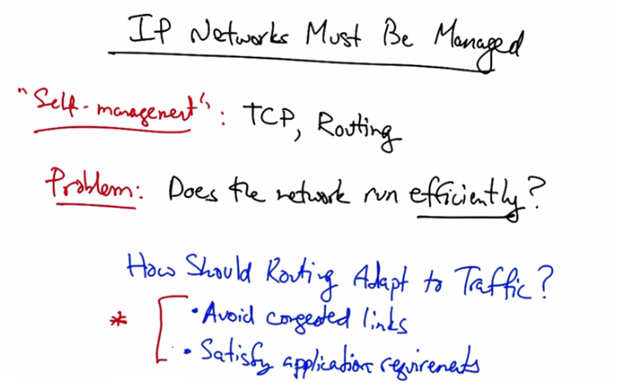 IP Networks Must Be Managed
"Self-management": TCP, Routing
Problem: Does the network run efficiently?
How Should Routing Adapt to Traffic?
* • Avoid congested links
• Satisfy application requirements